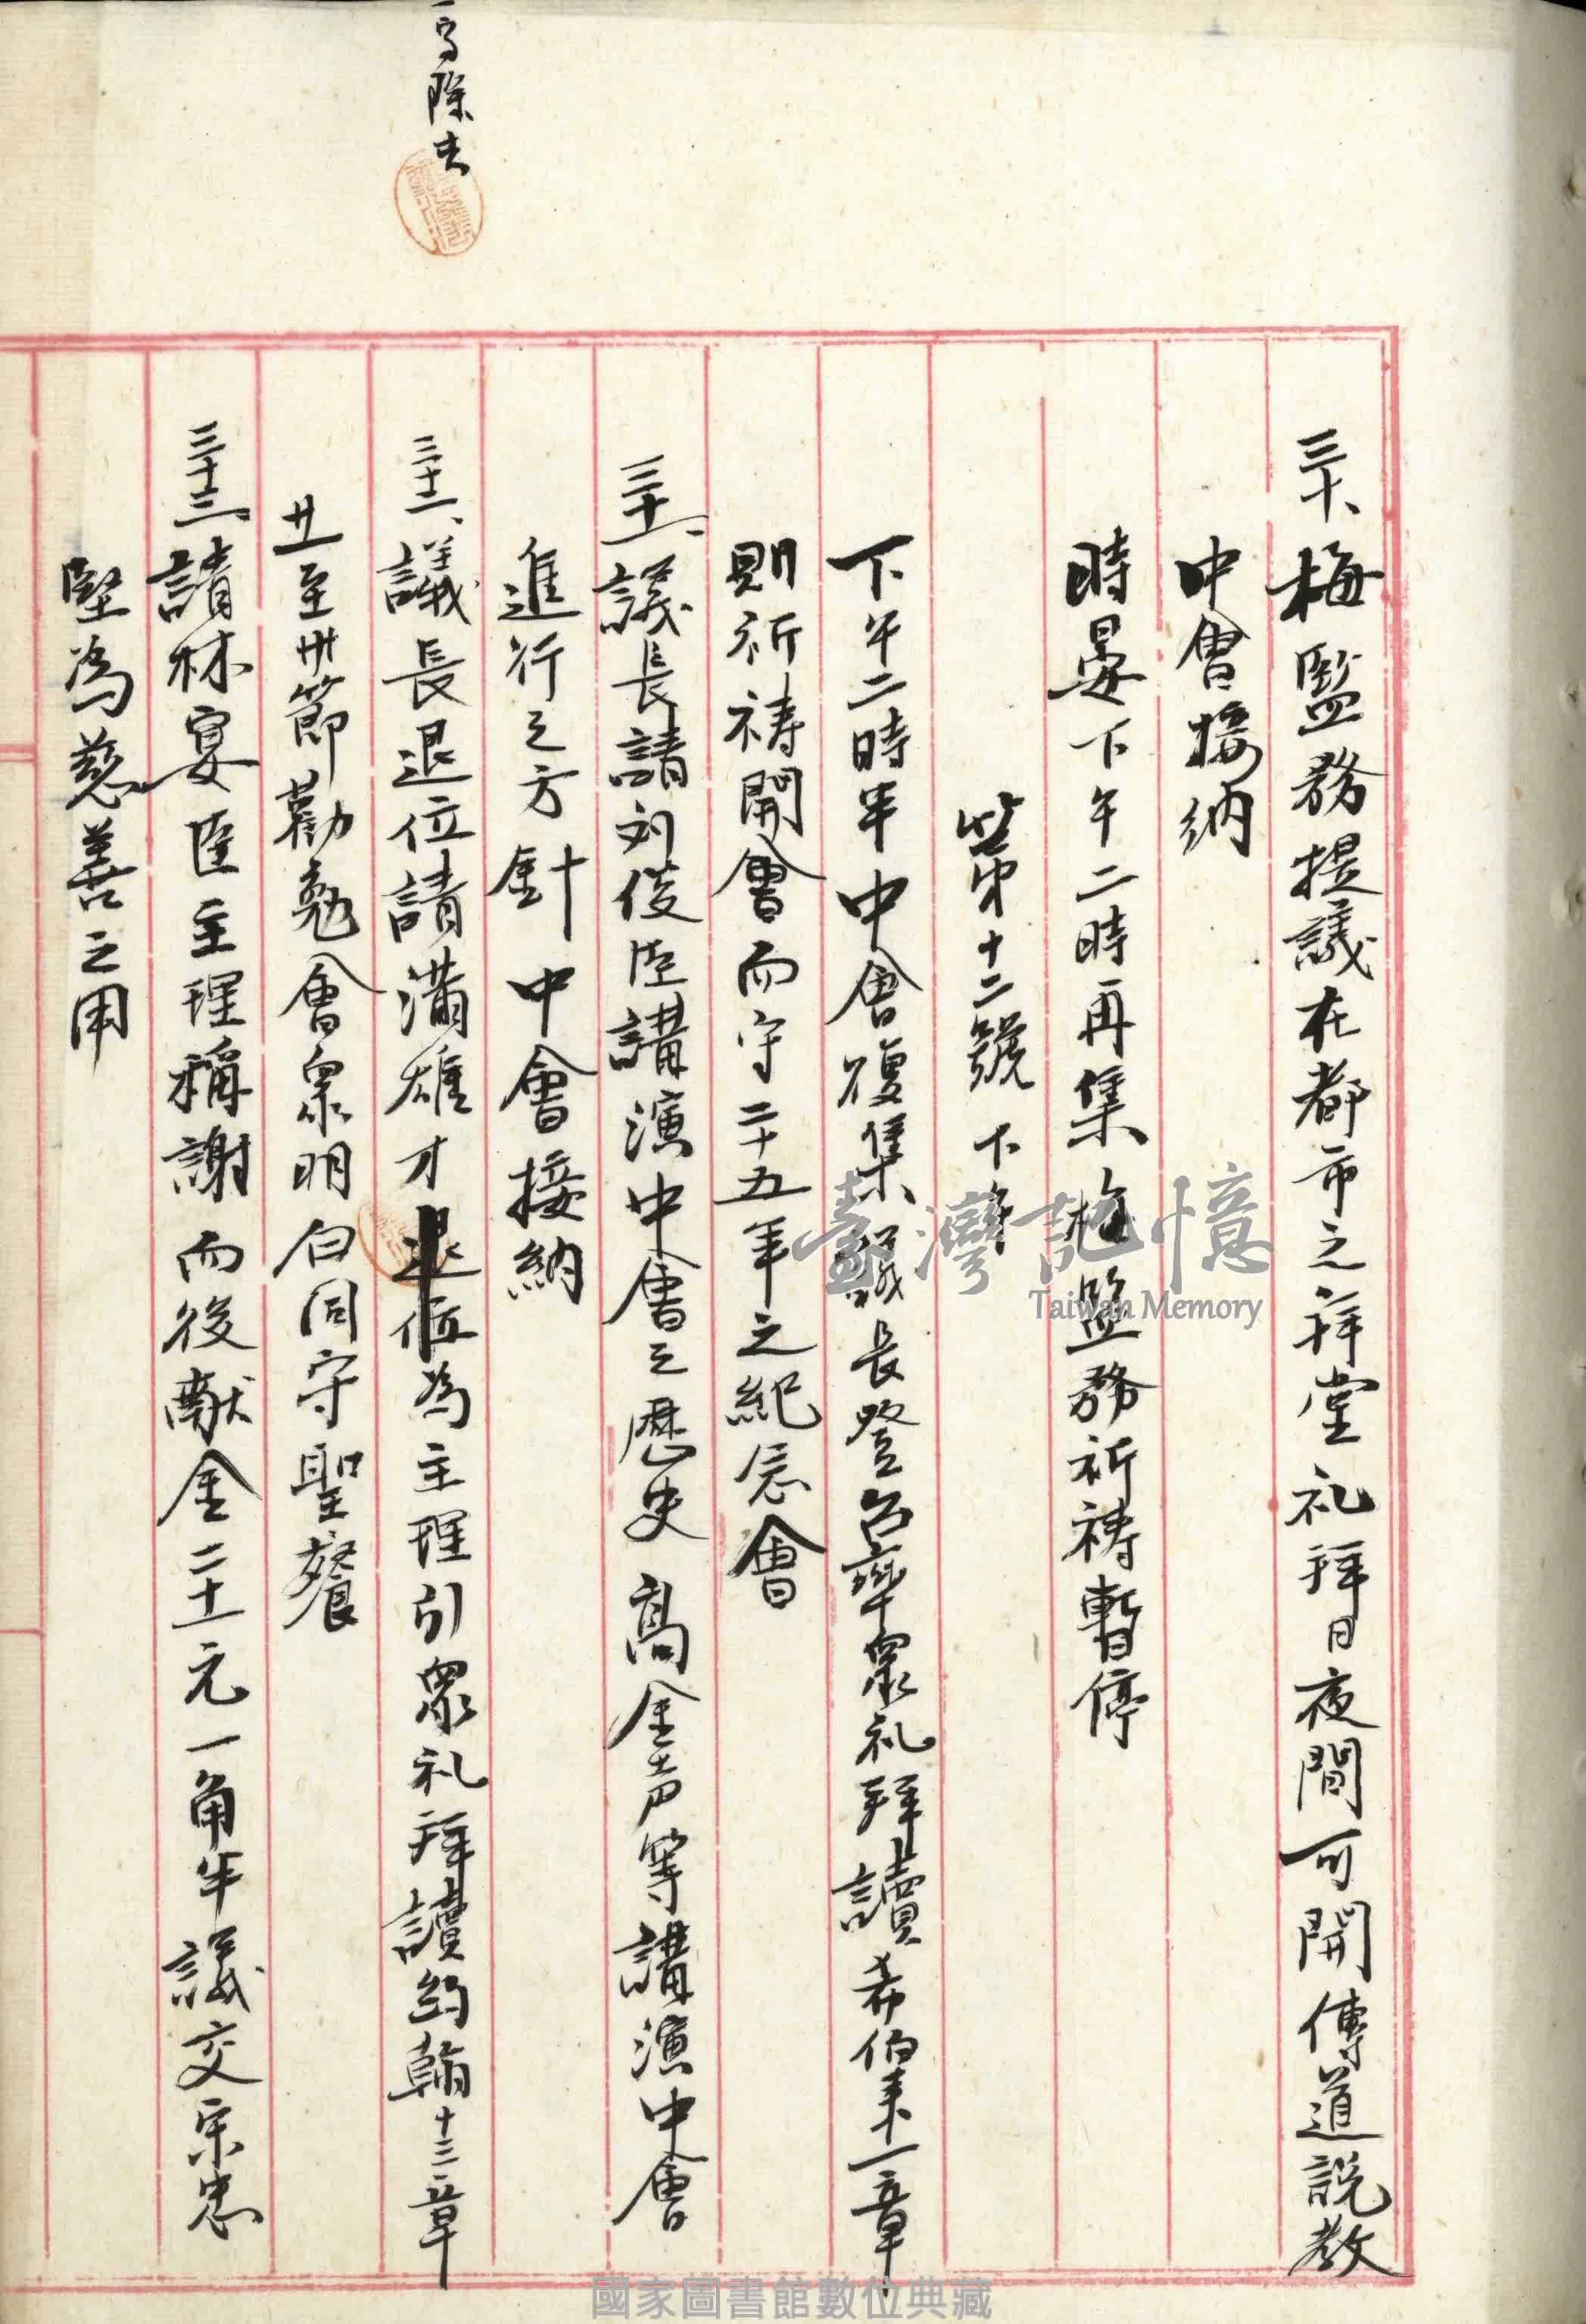 三十、梅監務提議在都市之拜堂礼拜日夜間可開傳道説教
中會接納
時晏下午二時再集梅監務祈禱暫停
第十二號 下午
下午二時半中會復集議長登台率眾礼拜讀希伯來一章
則祈禱開會而守二十五年之紀念會
三十一、議長請刘俊臣講演中會之歷史 高金声等講演中會
進行之方針 中會接納
三十二、議長退位請潘雄才退位為主理引眾礼拜讀約翰十三章
廿一至卅節勸勉會眾明白同守聖餐
三十三、請林宴臣主理稱謝而後献金二十一元一角半議交宋忠
堅為慈善之用
除去
臺灣記憶
Taiwan Memory
國家圖書館數位典藏